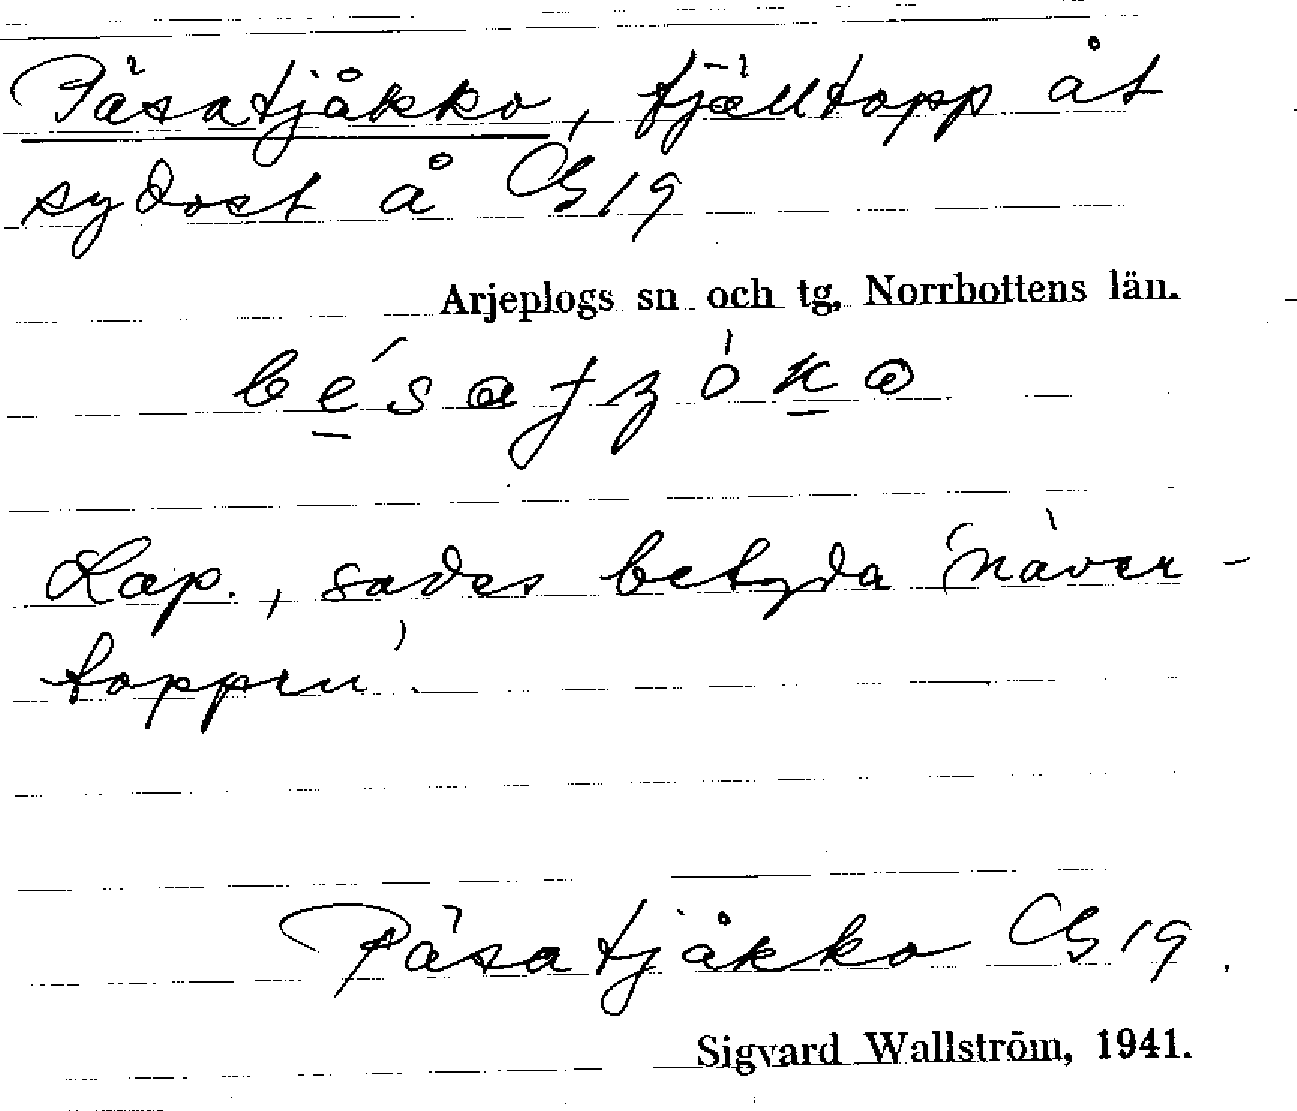 Päsatjåkko, fjälltopp åt
sydost å Gb 19
Arjeplogs sn och tg, Norrbottens län.
Lap., sades betyda 'näver-
toppen'.
Päsatjåkko Gb 19.
Sigvard Wallström, 1941.